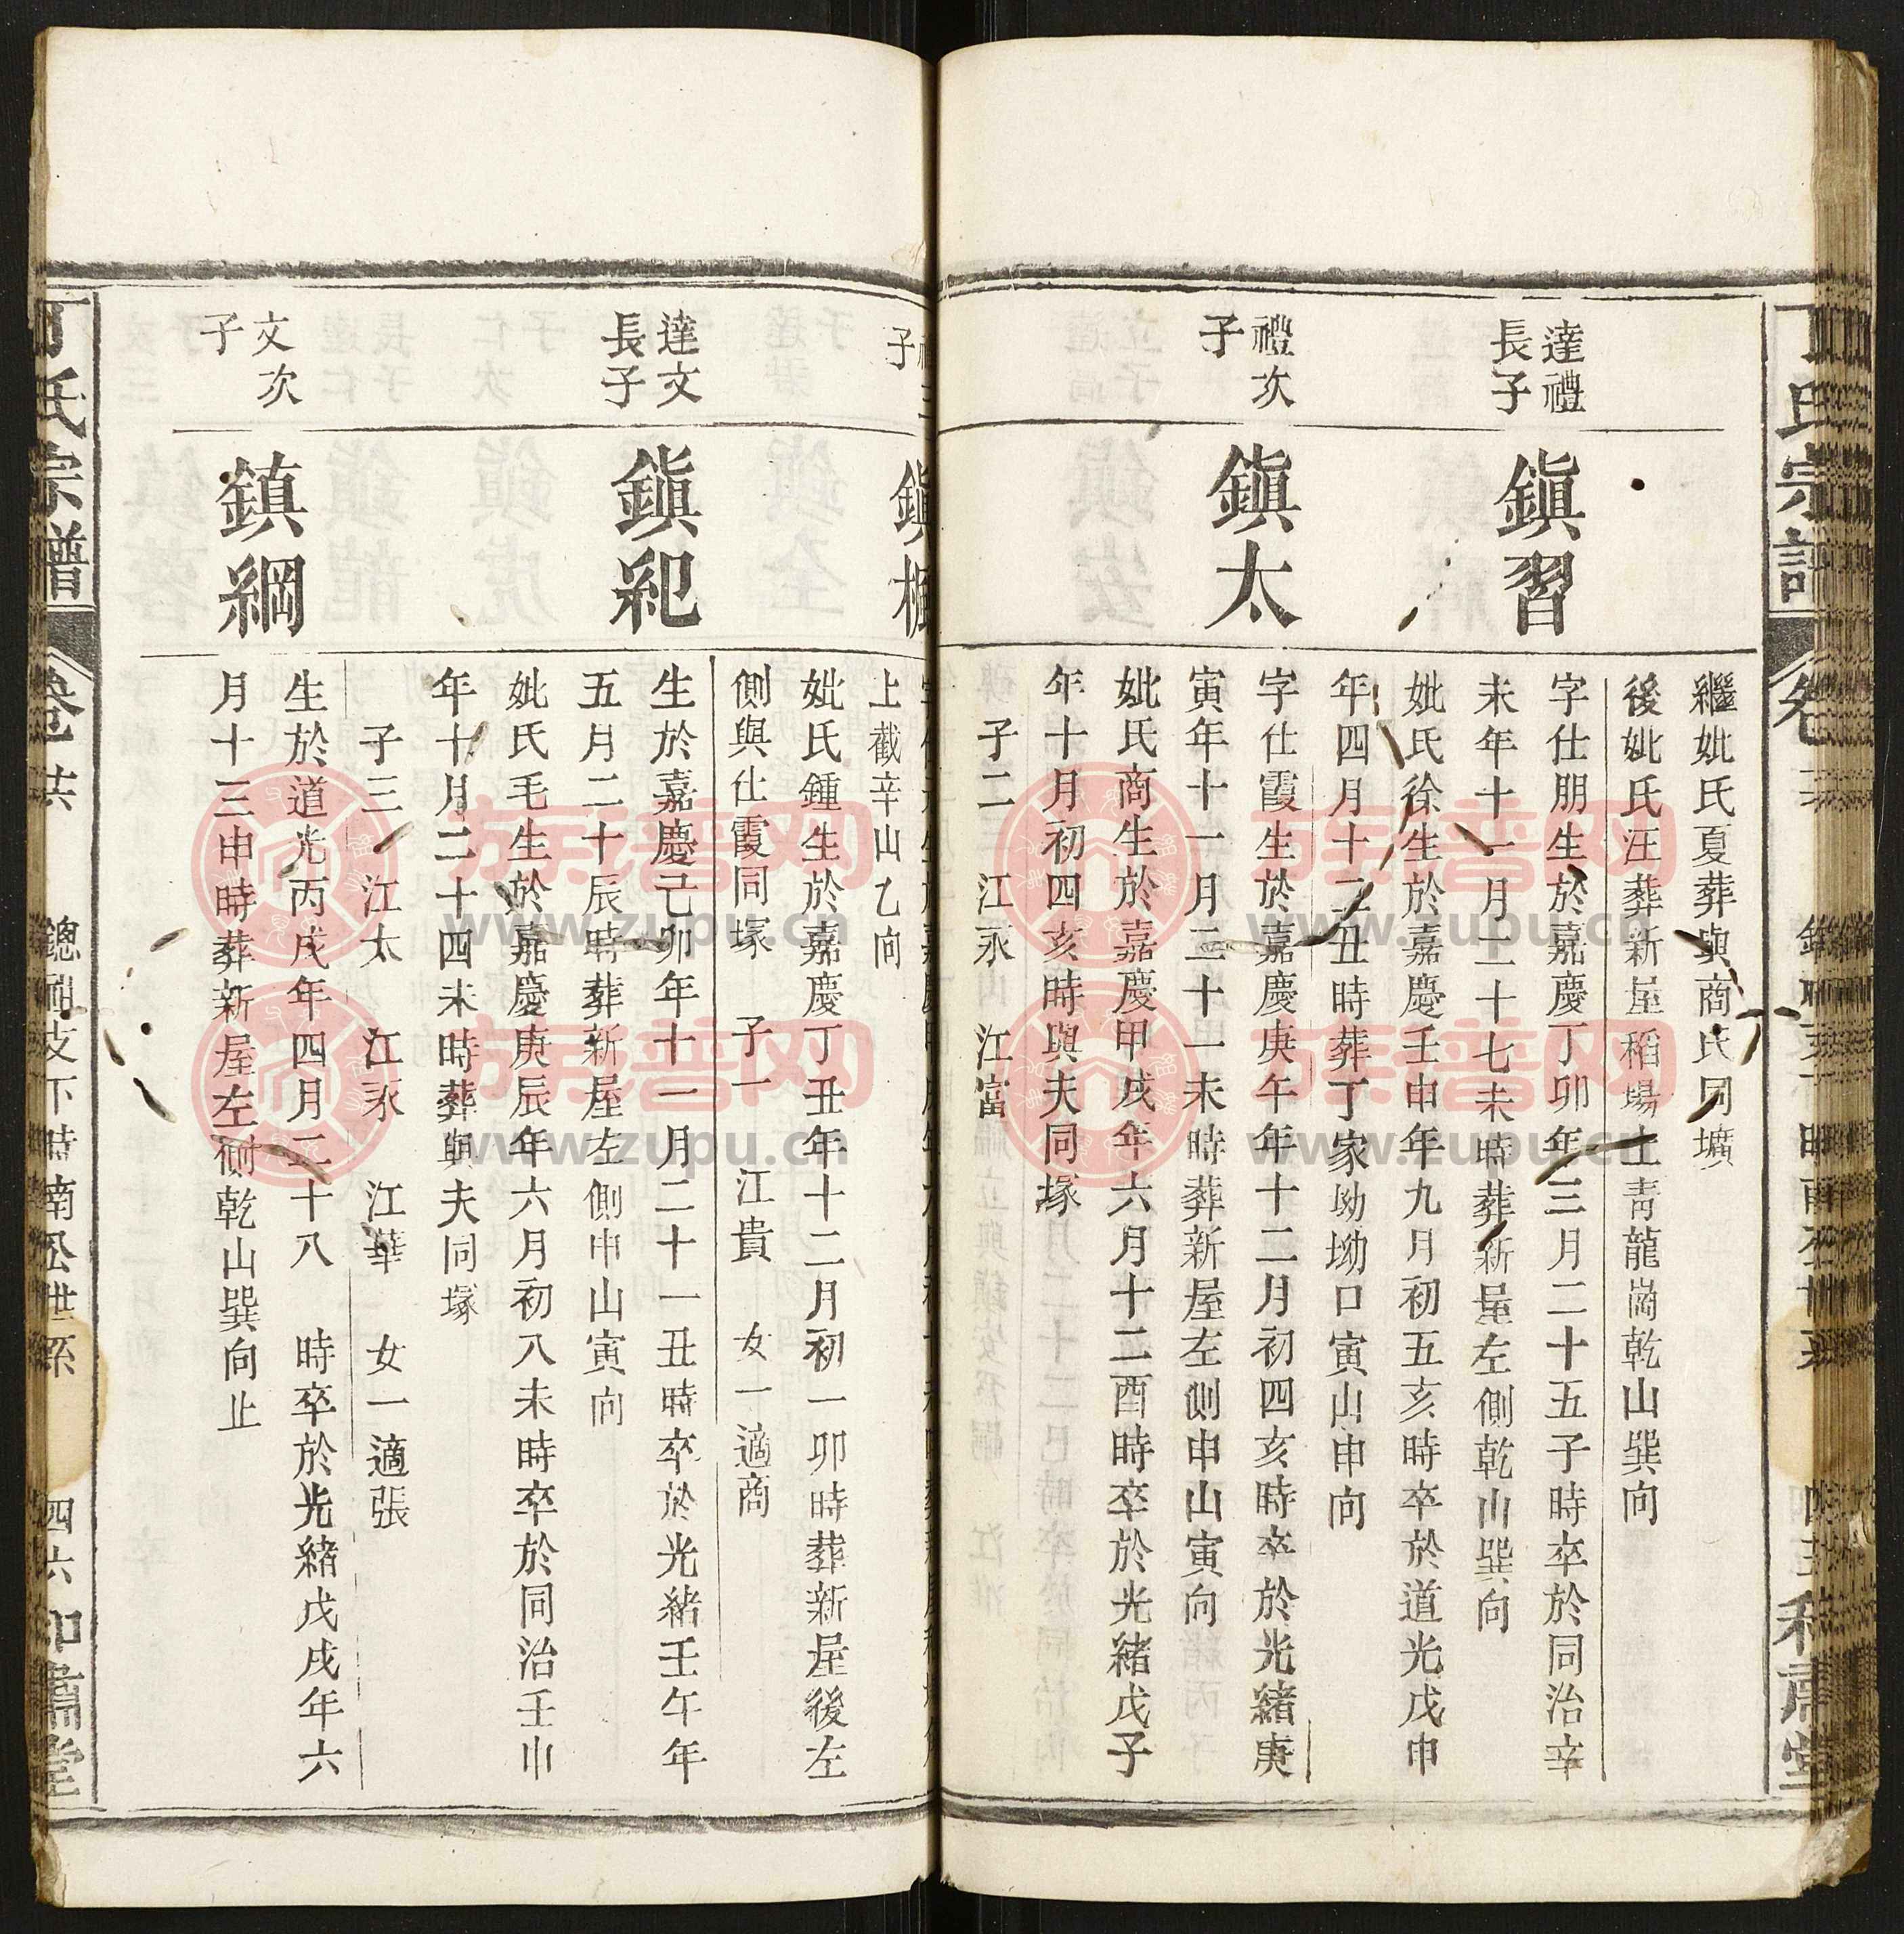 丁氏宗譜
繼妣氏夏葬與商氏同壙
後妣氏汪葬新屋稻場上靑龍崗乾山巽向
達禮
長子
鎭習
字仕朋生於嘉慶丁卯年三月二十五子時卒於同治辛
未年十一月二十七未時葬新屋左側乾山巽向
妣氏徐生於嘉慶壬申年九月初五亥時卒於道光戊申
年四月十二丑時葬丁家坳坳口寅山申向
禮次
子
鎭太
字仕霞生於嘉慶庚午年十二月初四亥時卒於光緒庚
寅年十一月二十一未時葬新屋左側申山寅向
妣氏商生於嘉慶甲戌年六月十二酉時卒於光緒戊子
年十月初四亥時與夫同塚
子二 江永 江富
子
鎭
上截辛山乙向
妣氏鍾生於嘉慶丁丑年十二月初一卯時葬新屋後左
側與仕霞同塚 子一 江貴 女一適商
達文
長子
鎭紀
生於嘉慶己卯年十一月二十一丑時卒於光緒壬午年
五月二十辰時葬新屋左側申山寅向
妣氏毛生於嘉慶庚辰年六月初八未時卒於同治壬申
年十月二十四未時葬與夫同塚
子三 江太 江永 江華 女一適張
文次
子
鎮綱
生於道光丙戌年四月二十八 時卒於光緒戊戌年六
月十三申時葬新屋左側乾山巽向止
丁氏宗譜 卷 共 總祖支下時南公世系 四六 和肅堂
族譜网
www.zupu.cn
族譜网
www.zupu.cn
族譜网
www.zupu.cn
族譜网
www.zupu.cn